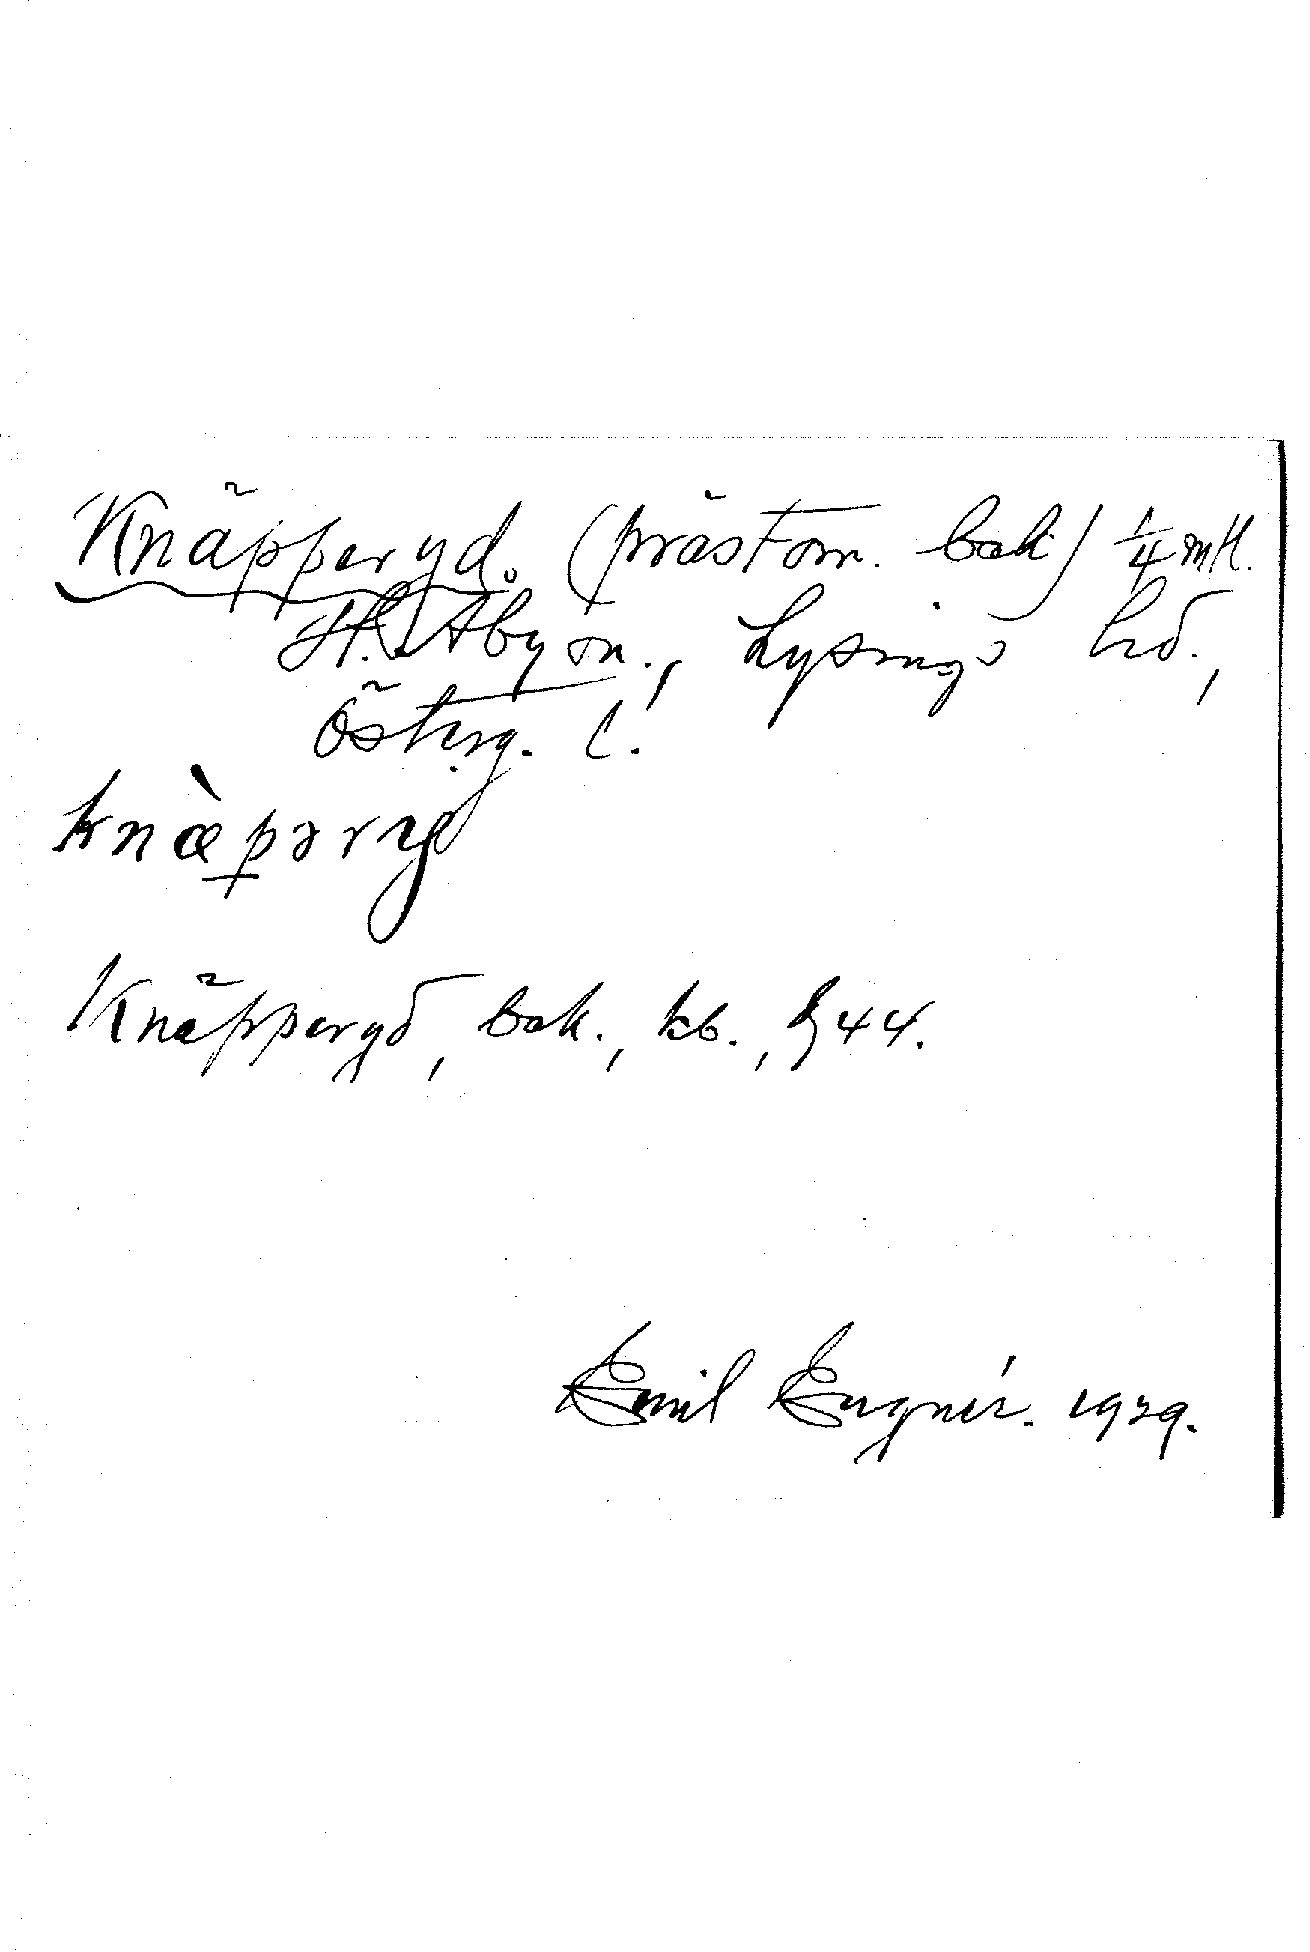 Knäpperyd. (prästom. bok) 1/4 mtl.
H. Åby sn., Lysings hd.,
Österg. l.
knæ̀pəry
Knäpperyd, bok., kb., 944.
Emil Eugnér. 1929.